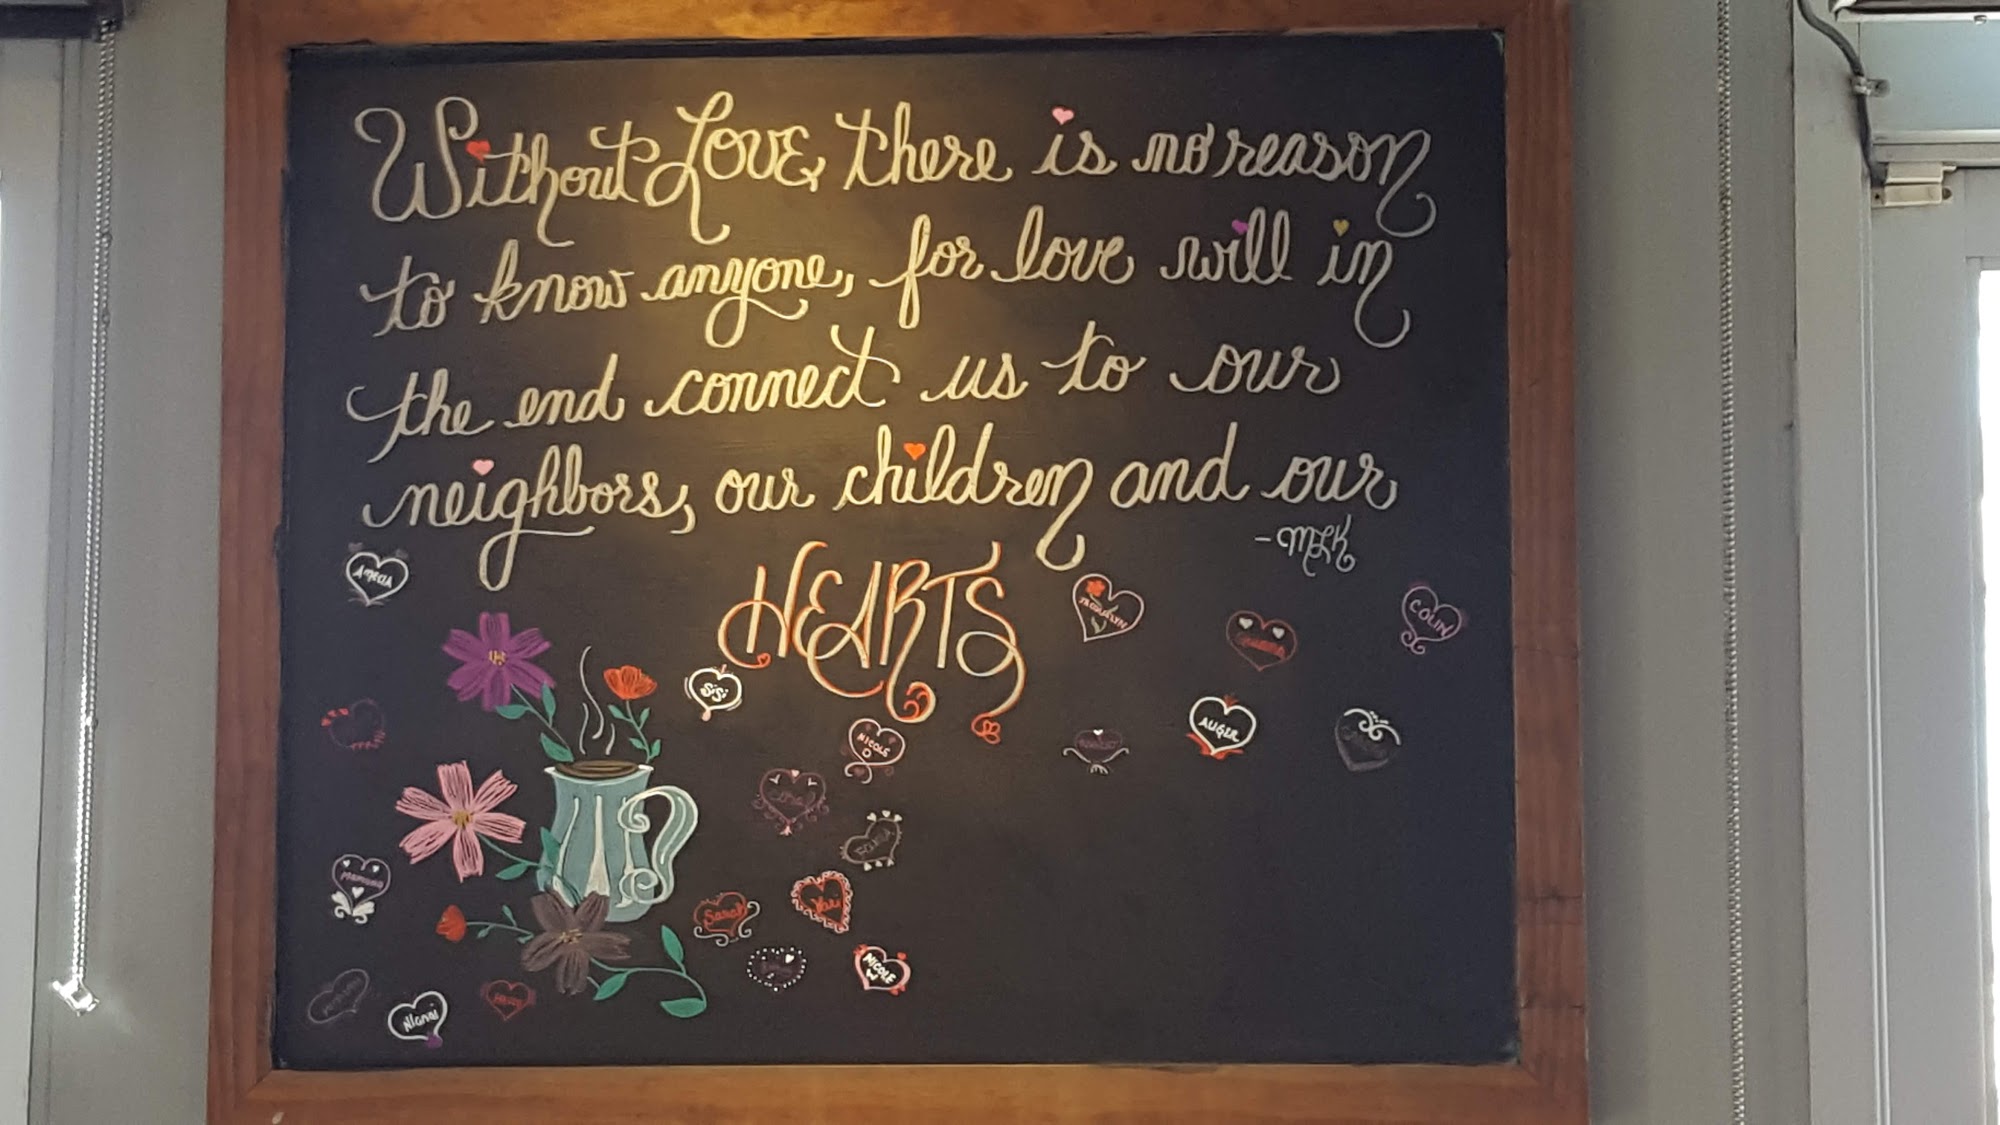 Without Love, there is no reason
to know anyone, for love will in
the end connect us to our
neighbors, our children and our
-MLK
HEARTS
Amecia
COLIN
SiSi
AUGER
NICOLE
Yai
Sarah
NICOLE
W